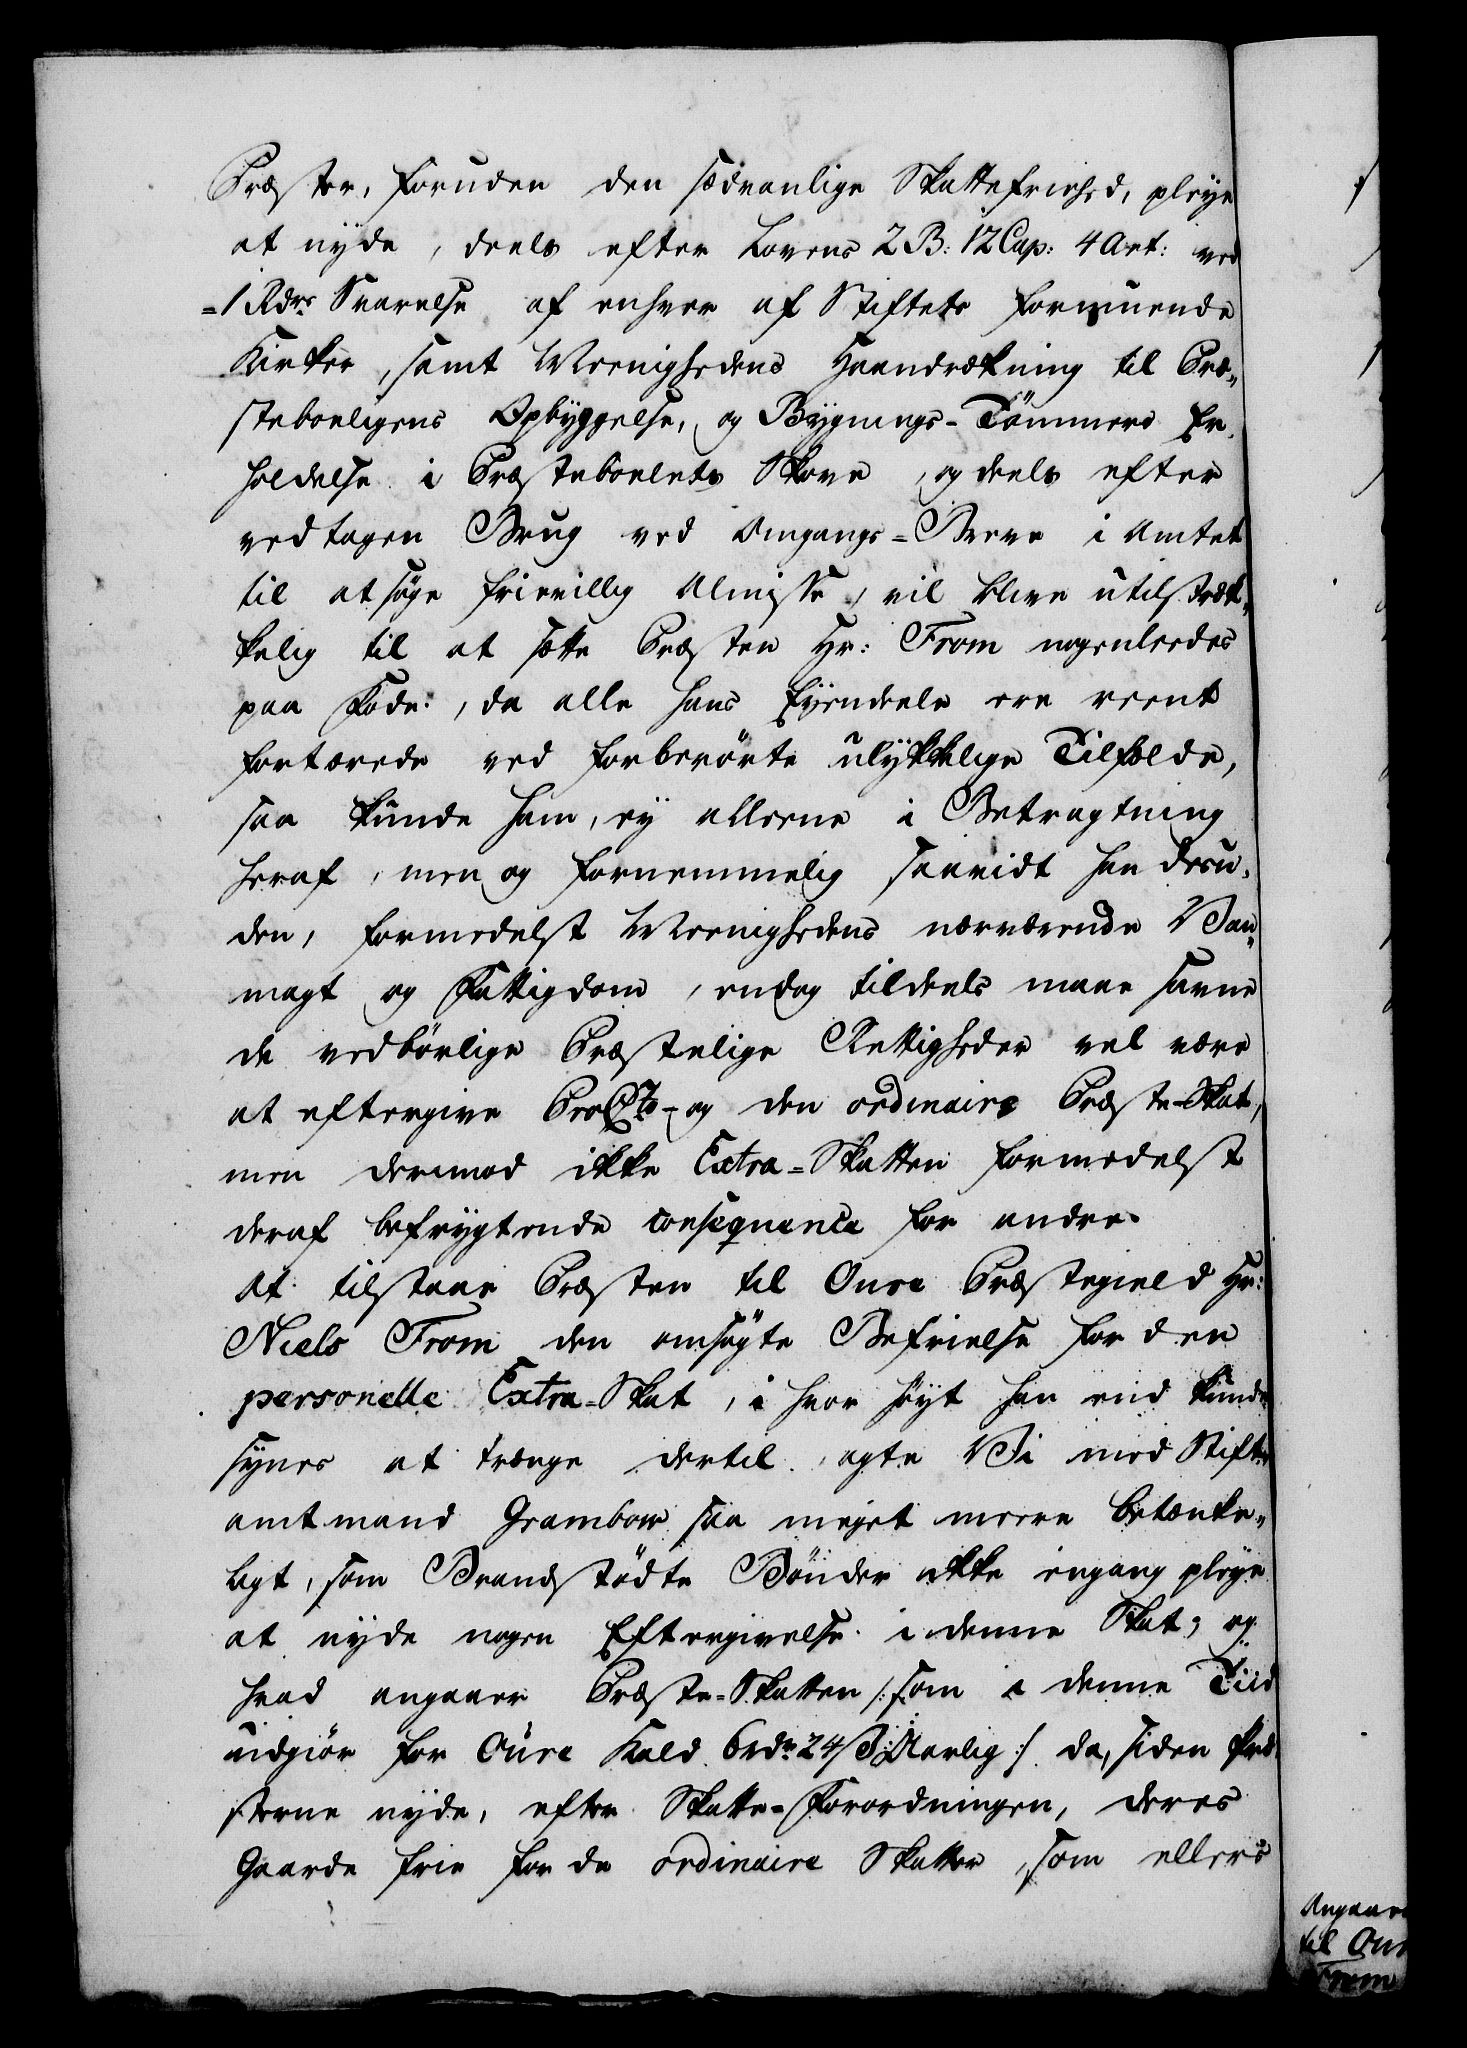 Præster, foruden den sædvanlige Skattefriehed, pleye
at nyde, deels efter Lovens 2 B: 12 Cap: 4 Art: ved
=1 Rdrs Svarelse af enhver af Stiftets formuende
Kirker, samt Meenighedens Haandrækning til Præ„
steboeligens Opbyggelse, og Bygnings-Tömmers Er„
holdelse i Præsteboelets Skove, og deels efter
vedtagen Brug ved Omgangs=Breve i Amtet
til at søge frievillig Almisse, vil blive utilstræk„
kelig til at sætte Præsten Hr: From nogenleedes
paa Fode, da alle hans Eyendeele ere reent
fortærede ved forberörte ulykkelige Tilfælde,
saa kunde ham, ey alleene i Betragtning
heraf, men og fornemmelig saavidt han desu„
den, formedelst Meenighedens nærværende Van„
magt og Fattigdom, endog tildeels maae savne
de vedbørlige Præstelige Rettigheder vel være
at eftergive og den ordinaire Præste-Skat,
men derimod ikke Extra=Skatten formedelst
deraf befrygtende consequence for andre.
At tilstaae Præsten til Oure Præstegield Hr:
Niels From den ansøgte Befrielse for den
personelle Extra=Skat, i hvor høyt han end kunde
synes at trænge dertil, agte Vi med Stifts
amtmand Grambow saa meget meere betænke„
ligt, som Brandstødte Bönder ikke engang pleye
at nyde nogen Eftergivelse i denne Skat; og
hvad angaaer Præste=Skatten /: som i denne Tiid
udgiør for Oure Kald 6 rdr 24 ß Aarlig :/ da, siden Præ„
sterne nyde, efter Skatte=Forordningen, deres
Gaarde frie for de ordinaire Skatter, som ellers
til Our
From